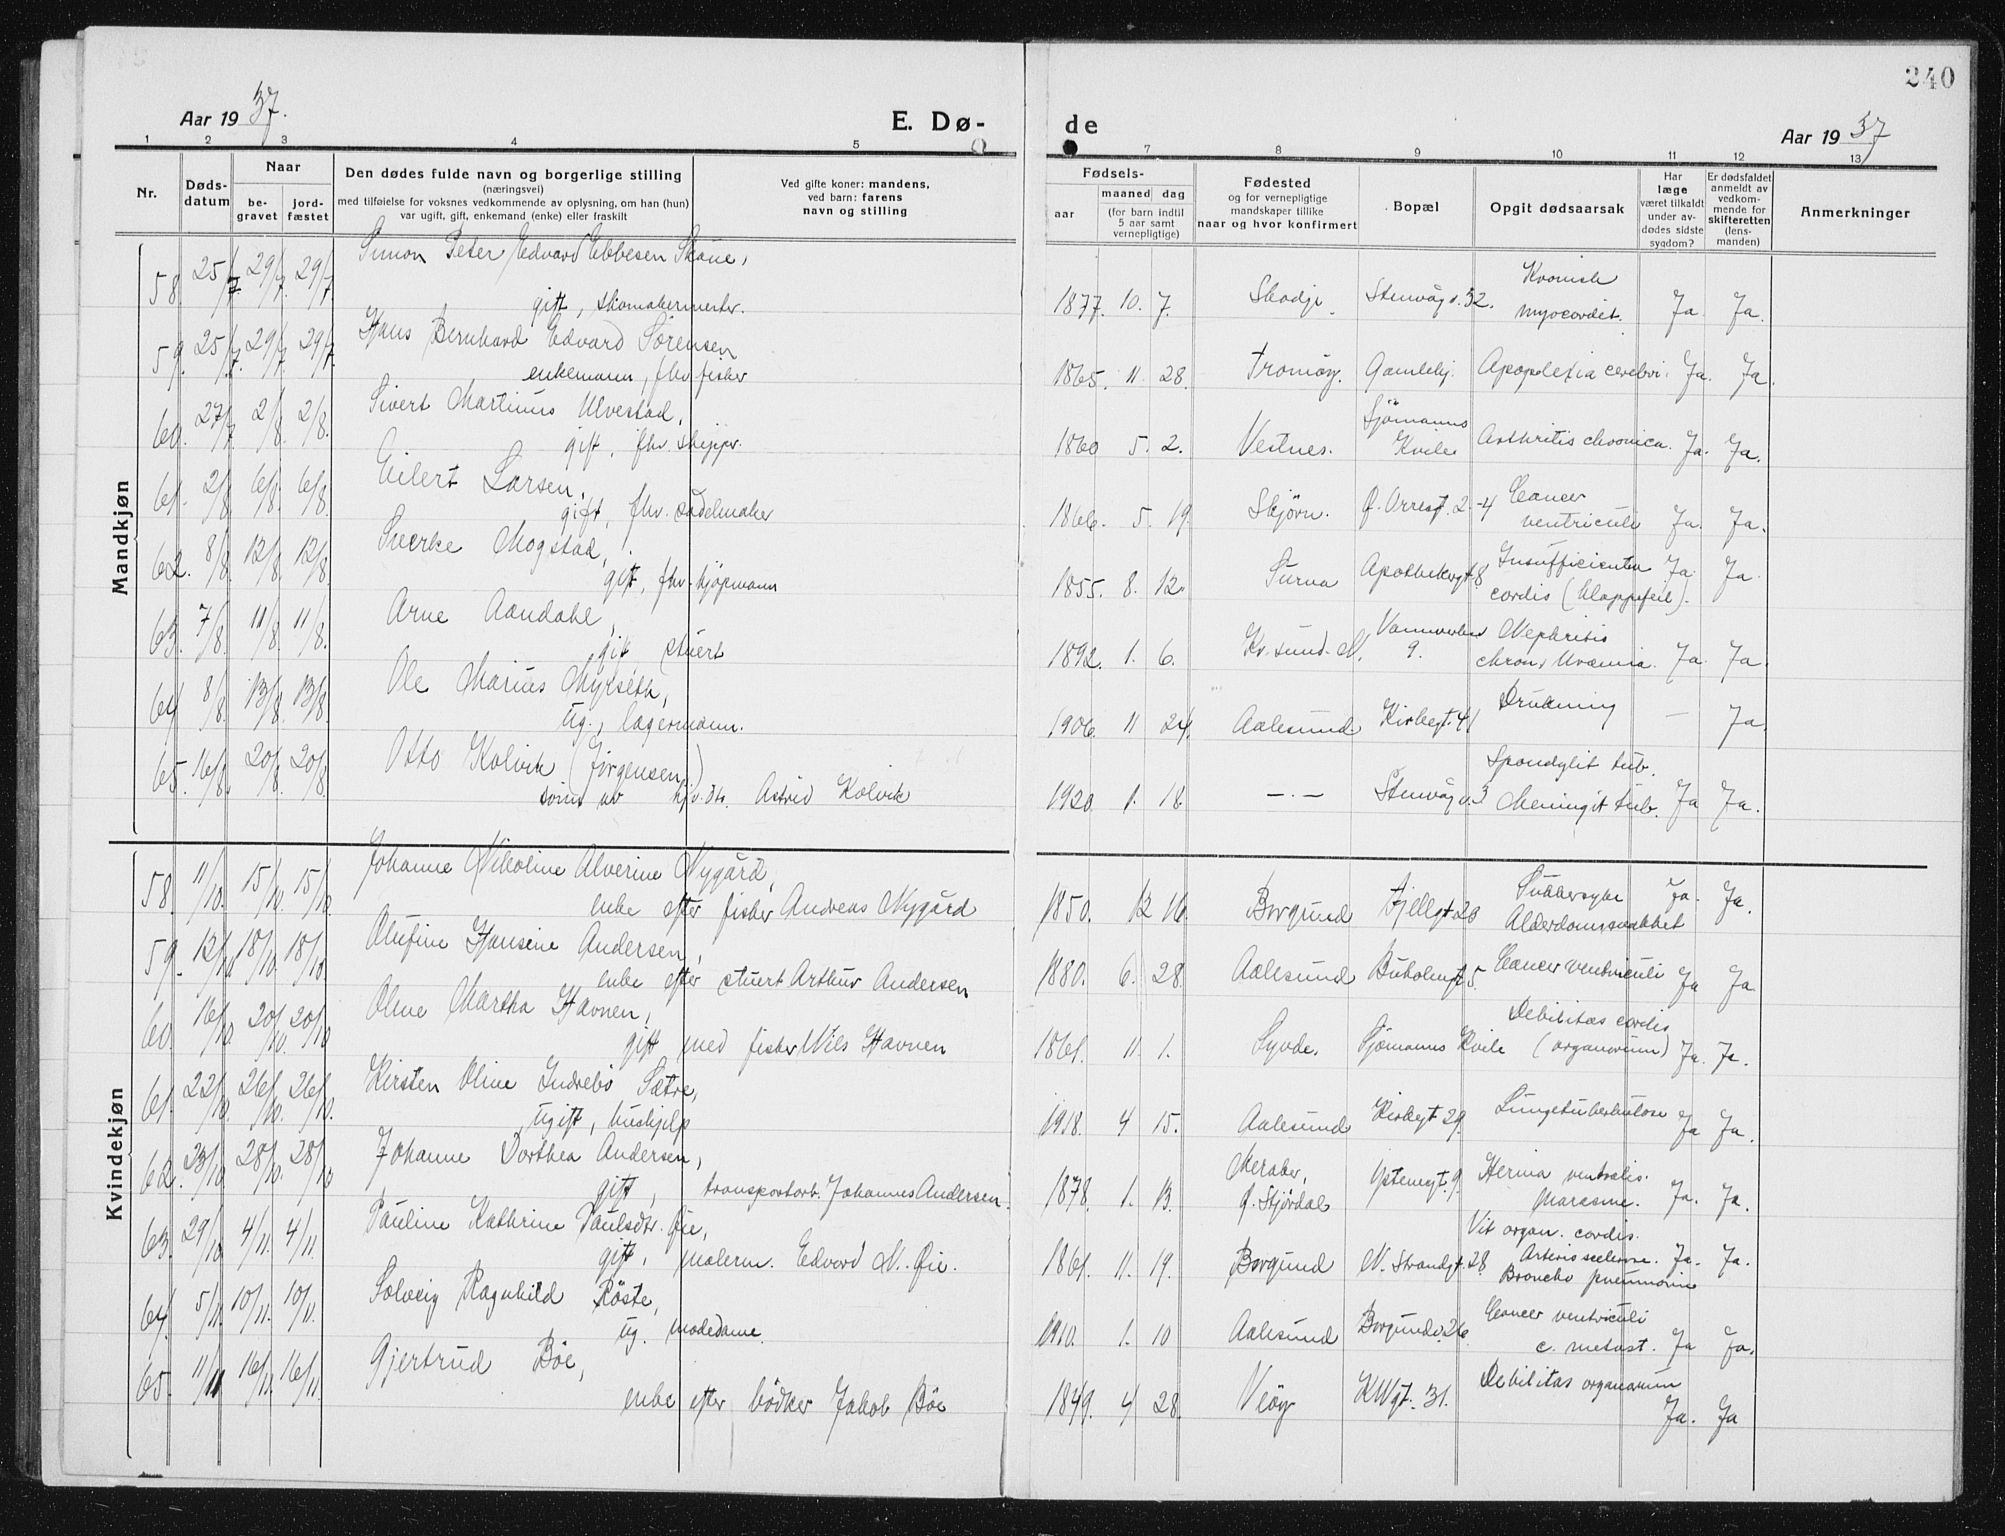 240
Aar 1937.
E. Dø-
de
Aar 1937
1 2 3 4 5 7 8 9 10 11 12 13
Nr.
Døds-
datum
Naar
be-
gravet
jord-
fæstet
Den dødes fulde navn og borgerlige stilling
(næringsvei)
med tilføielse for voksnes vedkommende av oplysning, om han (hun)
var ugift, gift, enkemand (enke) eller fraskilt
Ved gifte koner: mandens,
ved barn: farens
navn og stilling
Fødsels-
aar
maaned dag
(for barn indtil
5 aar samt
vernepligtige)
Fødested
og for vernepligtige
mandskaper tillike
naar og hvor konfirmert
Bopæl
Opgit dødsaarsak
Har
læge
været tilkaldt
under av-
dødes sidste
sygdom?
Er dødsfaldet
anmeldt av
vedkom-
mende for
skifteretten
(lens-
manden)
Anmerkninger
Mandkjøn
58. 25/7. 29/7. 29/7. Simon Peter Edvard Ebbesen Skaue,
gift, skomakermester.
1877. 10. 7. Skodje. Stenvågv. 32. Kronisk
myocardit. Ja Ja.
59. 25/7. 29/7. 29/7. Hans Bernhard Edvard Sørensen
enkemann, fhv fisker
1865. 11. 28. Tromøy. Gamlehj. Apoplexia cerebri. Ja. Ja.
60. 27/7 2/8. 2/8. Sivert Martinus Ulvestad,
gift, fhv. skipper.
1860 5. 2. Vestnes. Sjømanns
Kvile Arthritis chronica. Ja. Ja.
61. 2/8. 6/8. 6/8. Eilert Larsen,
gift, fhv. sadelmaker
1866. 5. 19. Skjørn. Ø. Orrest. 2-4 Cancer
ventriculi Ja. Ja.
62. 8/8. 12/8. 12/8. Sverke Mogstad,
gift, fhv. kjøpmann
1855. 8. 12. Surna Apothekergt 8 Insufficientia
cordis (klappefeil). Ja. Ja.
63. 7/8. 11/8. 11/8. Arne Aandahl,
gift, stuert
1892. 1. 6. Kr.sund. N. 9. Nephritis
chron, Uræmia. Ja. Ja.
64. 8/8. 13/8. 13/8. Ole Marius Myrseth,
ug., lagermann.
1906. 11 24. Aalesund. Kirkegt. 41 Drukning — Ja
65. 16/8. 20/8. 20/8. Otto Kolvik (Jørgensen)
sønn av hjv. 36. Astrid Kolvik
1920. 1. 18. —.— Stenvågv. 3 Spondylit tub.
Meningit tub. Ja Ja.
Kvindekjøn
58. 11/10. 15/10. 15/10. Johanne Nikoline Alverine Nygård,
enke efter fisker Andreas Nygård
1850. 12 16. Borgund Fjellgt 20 Sukkersyke
Alderdomssvakhet Ja. Ja.
59. 12/10 18/10. 18/10. Olufine Hansine Andersen,
enke efter stuert Arthur Andersen
1880. 6. 28. Aalesund Buholmgt 5. Cancer ventriculi Ja Ja.
60. 16/10. 20/10. 20/10. Oline Martha Havnen,
gift med fisker Nils Havnen
1861. 11. 1. Syvde. Sjømanns Kvile Debilitas cordis
(organorum) Ja. Ja.
61. 22/10. 26/10. 26/10. Kirsten Oline Indrebø Sætre,
ugift, hushjelp
1918. 4 15. Aalesund Kirkegt 29. Lungetuberkulose Ja Ja.
62. 23/10. 28/10. 28/10 Johanne Dorthea Andersen,
gift, transportarb. Johannes Andersen.
1878. 1. 13. Meraker,
Ø. Stjørdal Ystenesgt. 9. Hernia ventralis.
Marasme. Ja. Ja.
63. 29/10. 4/11. 4/11. Pauline Kathrine Paulsdtr. Øie,
gift, malerm. Edvard M. Øie.
1861. 11. 19. Borgund N. Strandgt. 28 Vit organ. cordis.
Arteriosclerose.
Broncho pneumonie Ja. Ja.
64. 5/11. 10/11. 10/11. Solveig Ragnhild Røste,
ug. modedame.
1910. 1. 10 Aalesund Borgundv. 26 Cancer ventriculi
c. metast. Ja Ja.
65. 11/11 16/11. 16/11. Gjertrud Bøe,
enke efter bødker Jakob Bøe
1849. 4 28. Veøy KWgt. 31. Debilitas organorum
Ja. Ja